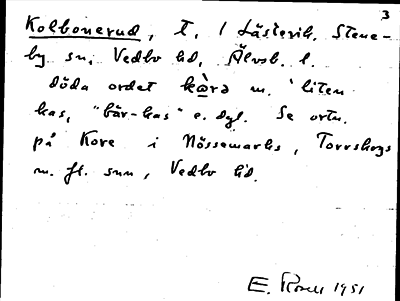 3
Kolbonerud, t. / Lästerik. Stene-
by sn, Vedbo hd, Älvsb. l.
döda ordet kɷ̀rə m. 'liten
kas, "bär-kas" e. dyl. Se ortn.
på Kore i Nössemarks, Torrskogs
m. fl. snn, Vedbo hd.
E. Rosell 1951